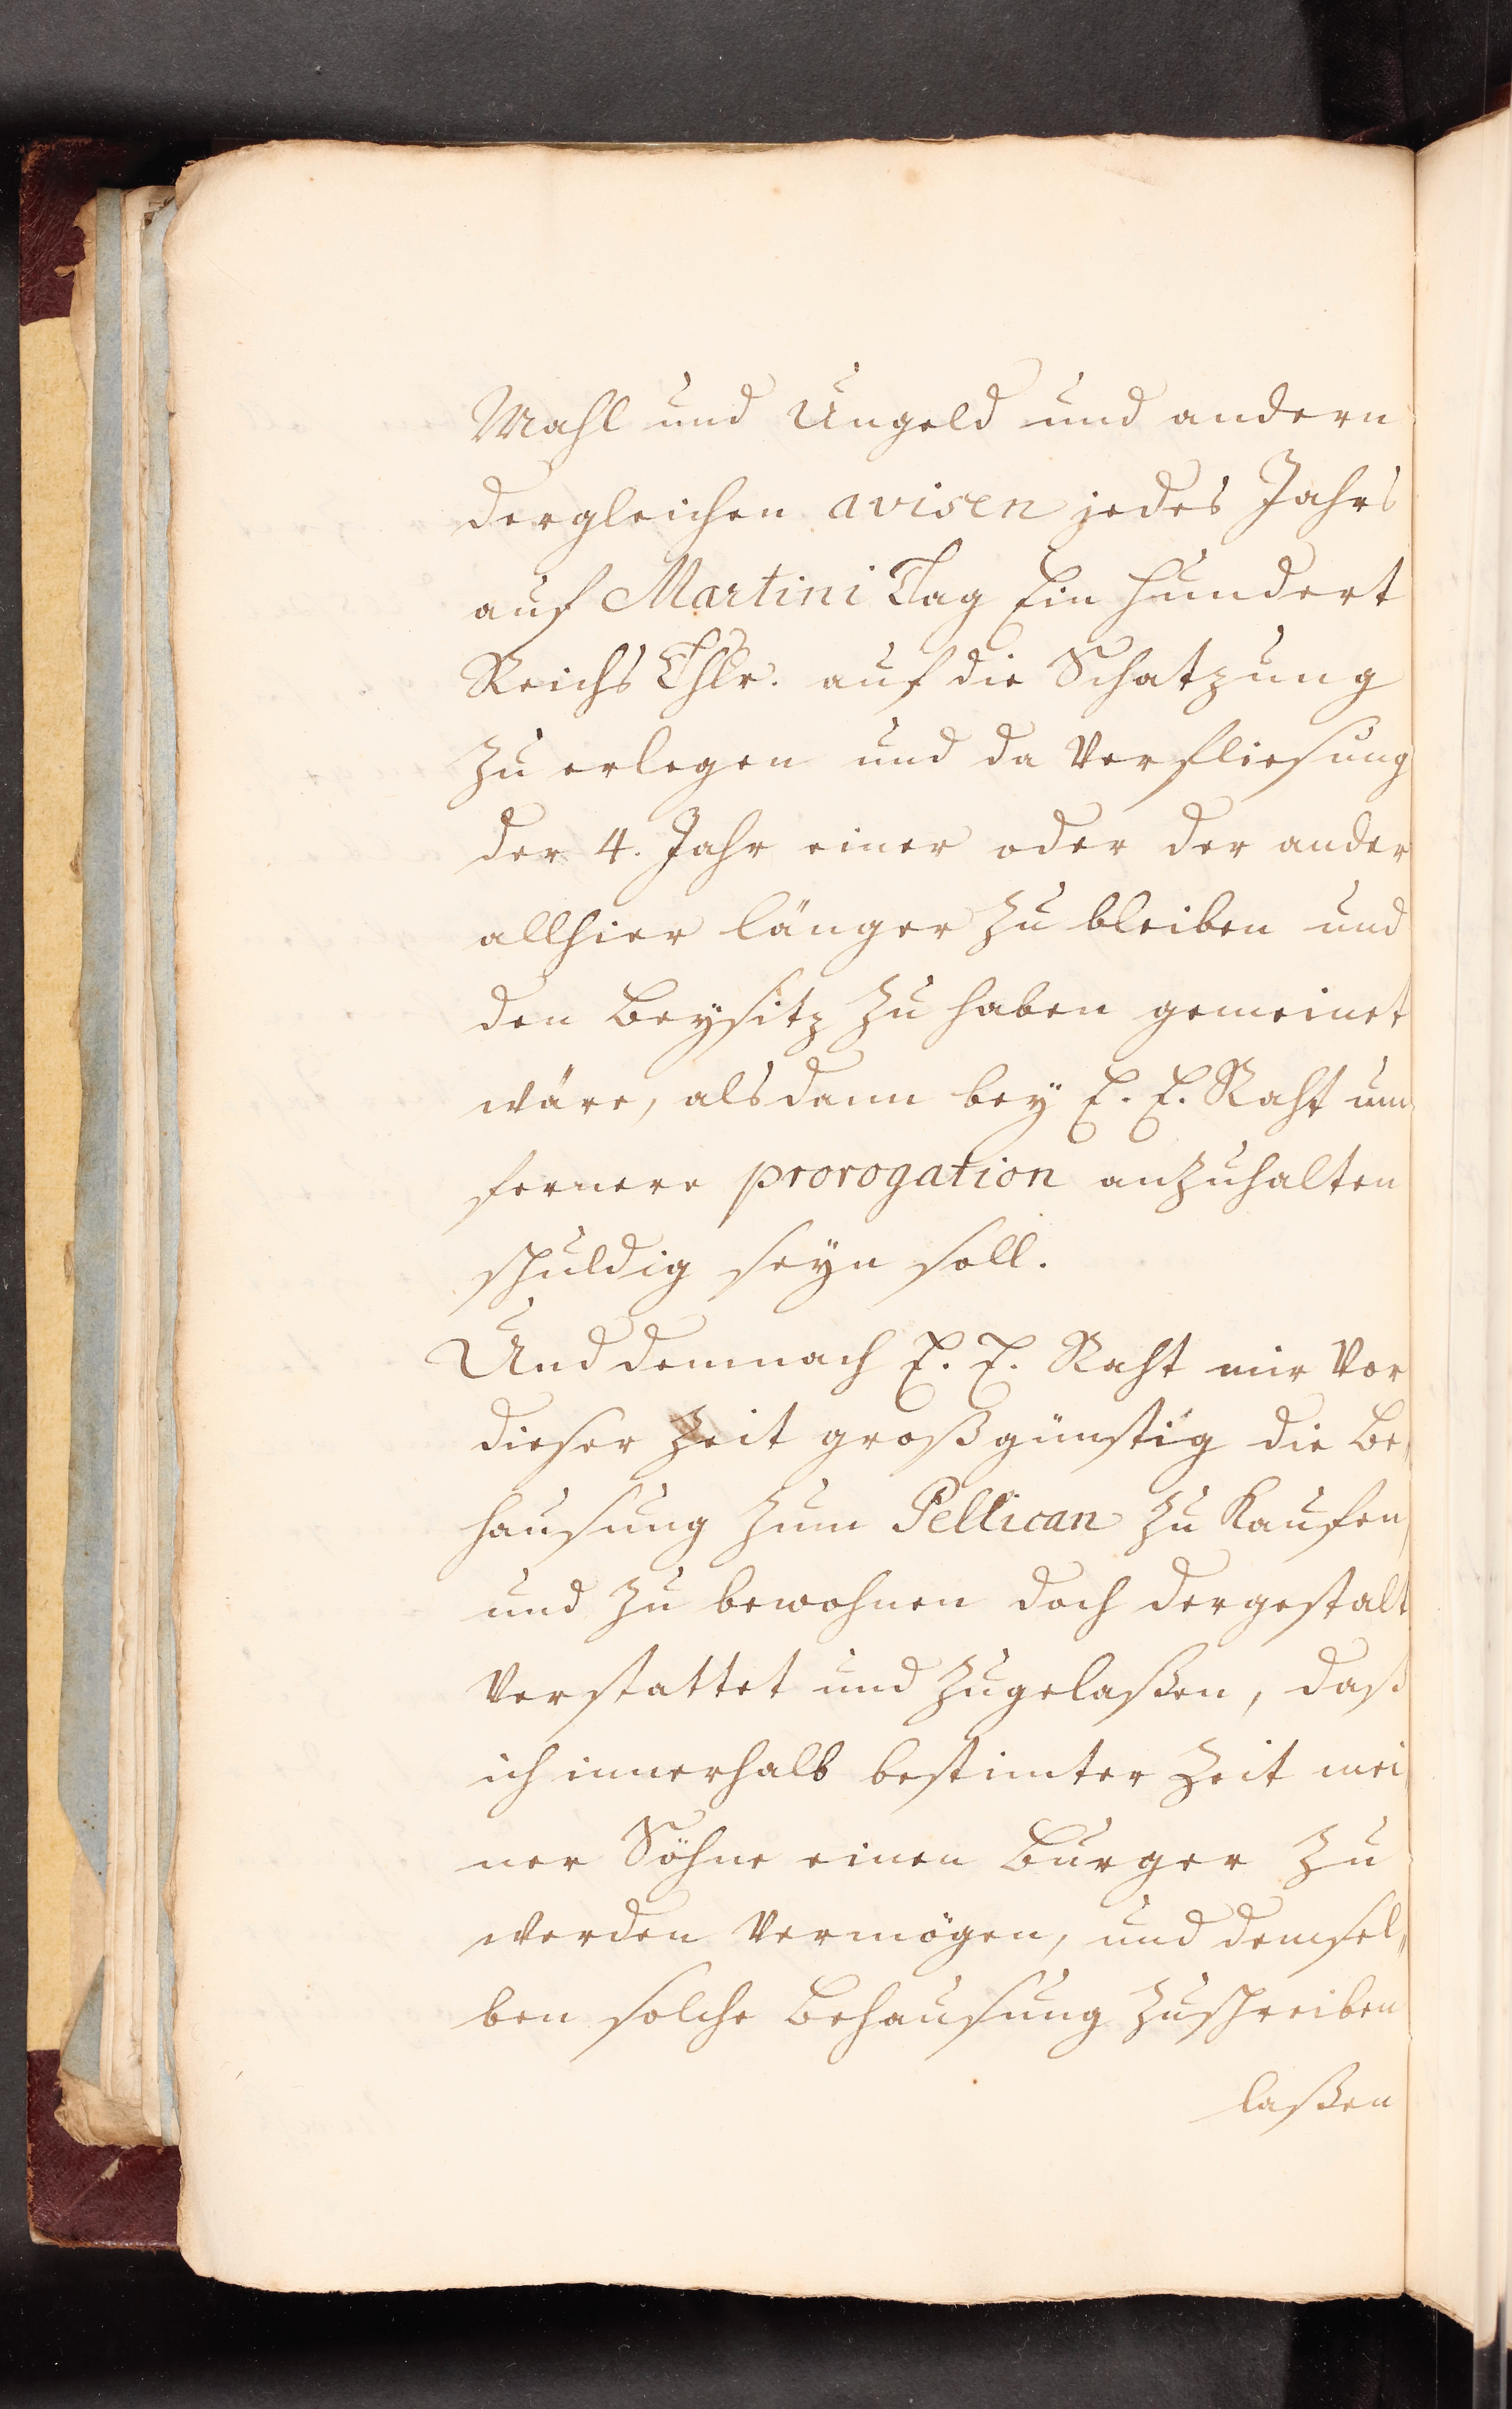 Mahl und Ungeld und andern
dergleichen avisen jedes Jahrs
auf Martini Tag Ein hundert
Reichs Thlr. auf die Schatzung
zu erlegen und da Verfliesung
der 4. Jahr einer oder der ander
allhier länger zu bleiben und
den Beysitz zu haben gemeinet
wäre, alsdann bey E. E. Raht um
fernere prorogation anzuhalten
schuldig seyn soll.
Und demnach E. E. Raht mir Vor
dieser Zeit großgünstig die Be„
hausung zum Pellican zu Kaufen
und zu bewohnen doch dergestalt
Verstattet und zugelaßen, daß
ich innerhalb bestimter Zeit mei
ner Söhne einen Burger zu
werden Vermögen, und demsel„
ben solche Behausung zuschreiben
laßen